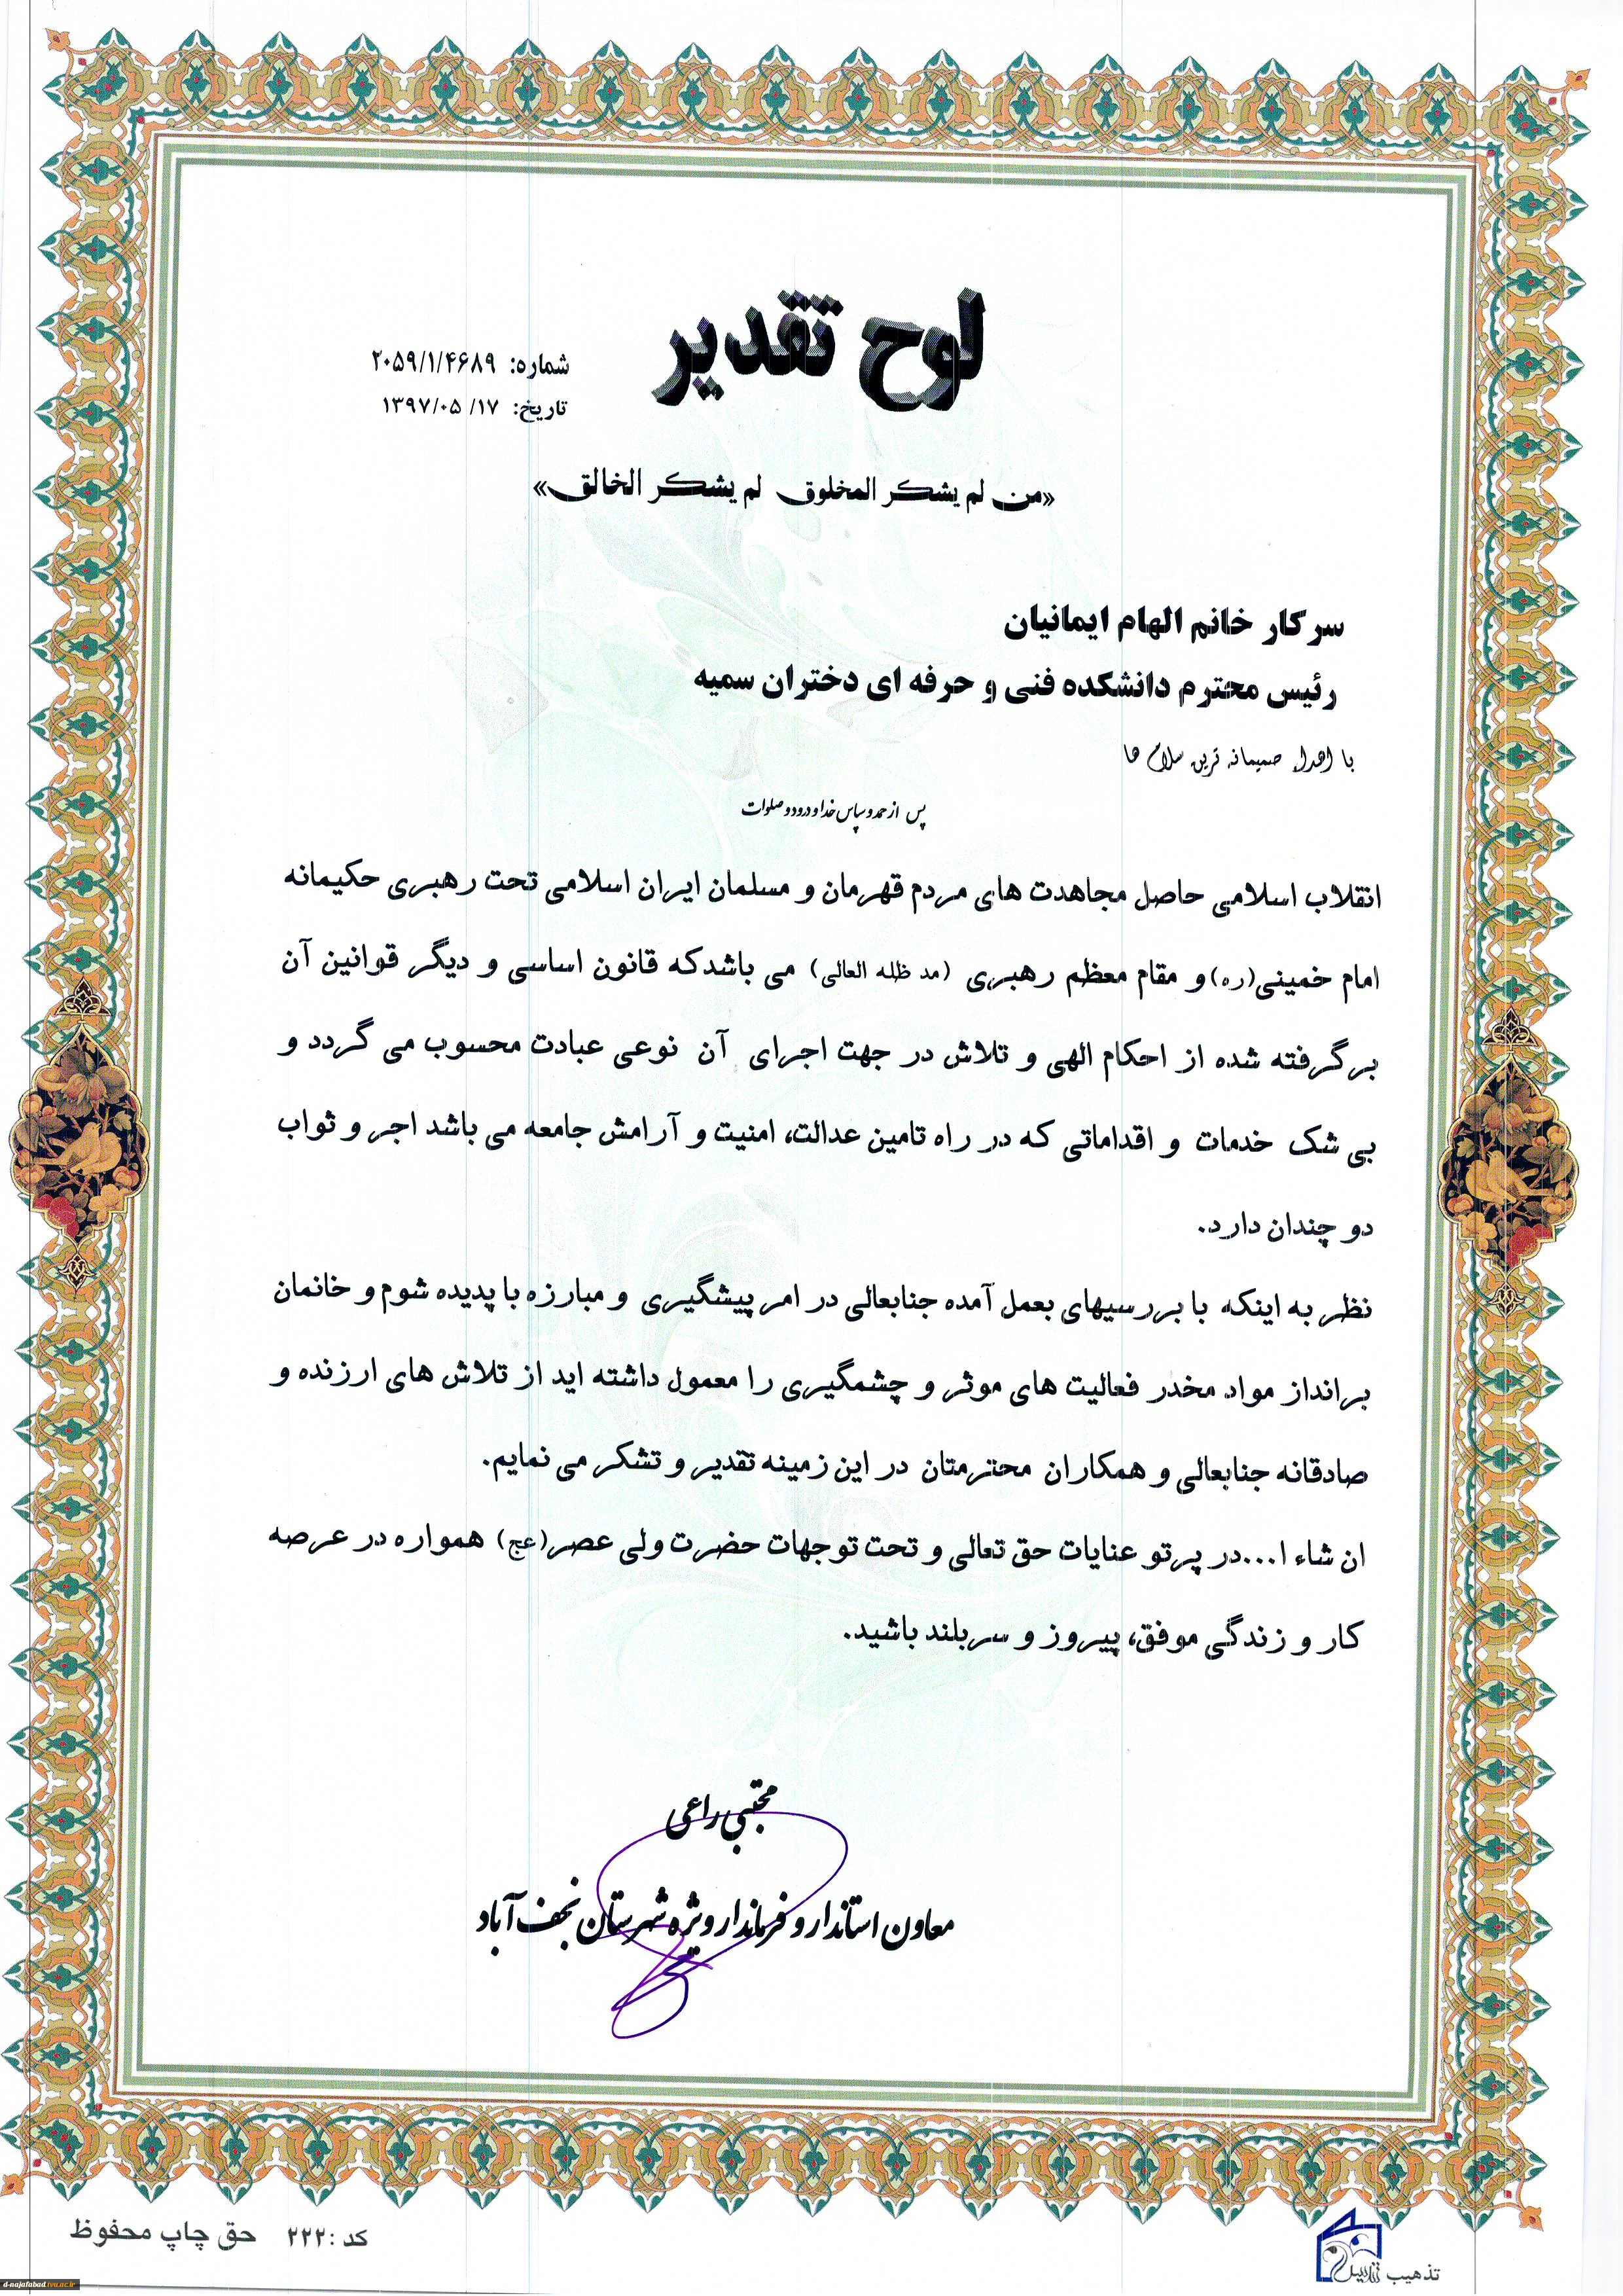 لوح تقدیر
شماره: ۲۰۵۹/۱/۴۶۸۹
تاریخ: ۱۳۹۷/۰۵/۱۷
«من لم یشکر المخلوق لم یشکر الخالق»
سرکار خانم الهام ایمانیان
رئیس محترم دانشکده فنی و حرفه ای دختران سمیه
با اهداء صمیمانه ترین سلام ها
پس از حمد و سپاس خدا و درود و صلوات
انقلاب اسلامی حاصل مجاهدت های مردم قهرمان و مسلمان ایران اسلامی تحت رهبری حکیمانه
امام خمینی(ره) و مقام معظم رهبری (مد ظله العالی) می باشدکه قانون اساسی و دیگر قوانین آن
برگرفته شده از احکام الهی و تلاش در جهت اجرای آن نوعی عبادت محسوب می گردد و
بی شک خدمات و اقداماتی که در راه تامین عدالت، امنیت و آرامش جامعه می باشد اجر و ثواب
دو چندان دارد.
نظر به اینکه با بررسیهای بعمل آمده جنابعالی در امر پیشگیری و مبارزه با پدیده شوم و خانمان
برانداز مواد مخدر فعالیت های موثر و چشمگیری را معمول داشته اید از تلاش های ارزنده و
صادقانه جنابعالی و همکاران محترمتان در این زمینه تقدیر و تشکر می نمایم.
ان شاء ا...در پرتو عنایات حق تعالی و تحت توجهات حضرت ولی عصر(عج) همواره در عرصه
کار و زندگی موفق، پیروز و سربلند باشید.
مجتبی راعی
معاون استاندار و فرماندار ویژه شهرستان نجف آباد
کد :۲۲۲ حق چاپ محفوظ
تذهیب
d-najafabad.tvu.ac.ir